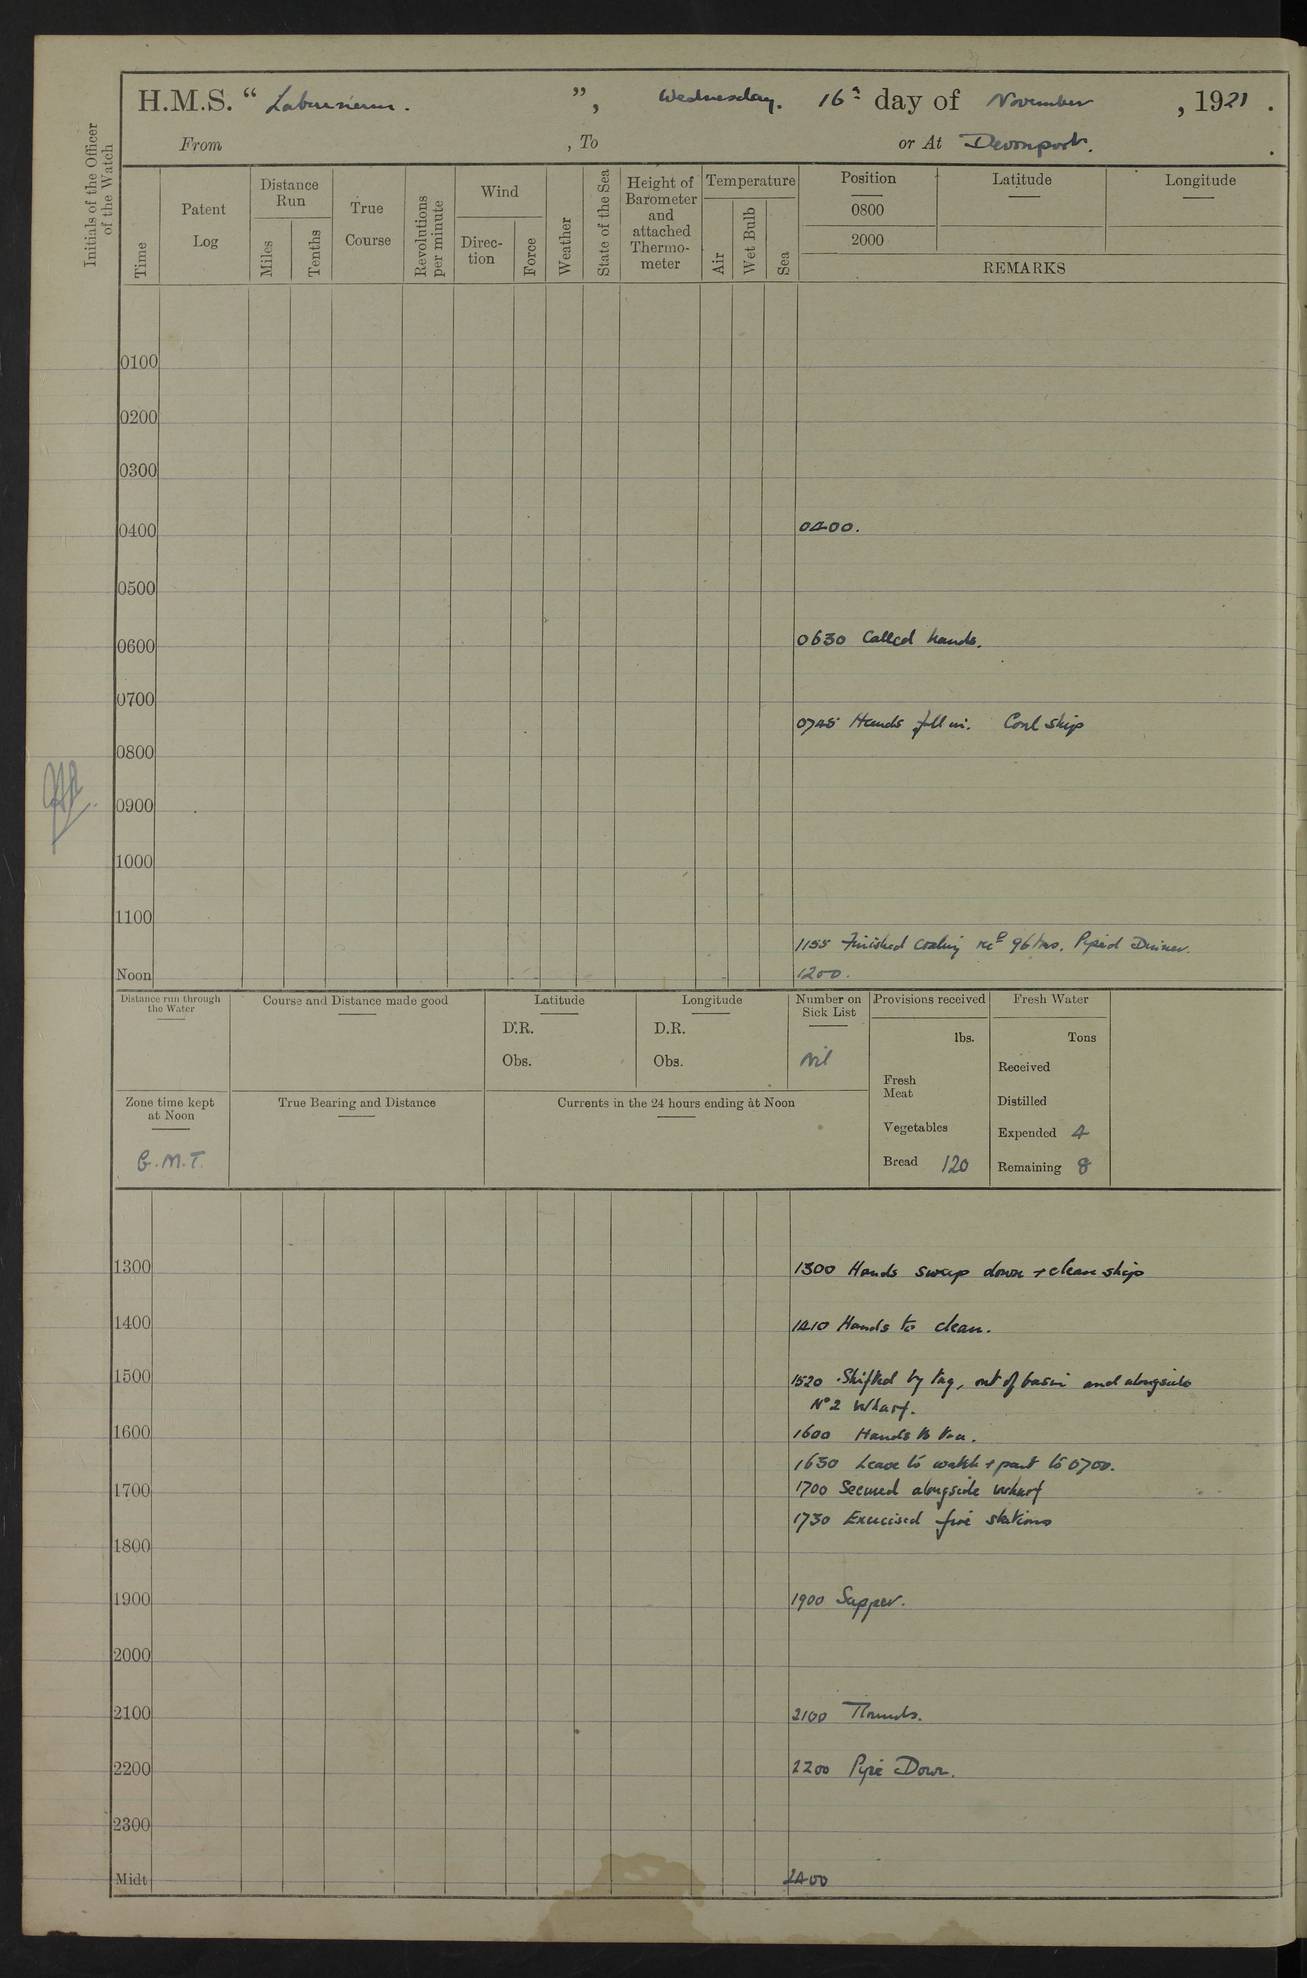 H.M.S. “ Laburnum. ”, Wednesday. 16th day of November, 1921.
From , To or At Devonport.
Initials of the Officer of the Watch
Time
Patent Log
Distance Run
Miles
Tenths
True Course
Revolutions per minute
Wind
Direc-tion
Force
Weather
State of the Sea
Height of Barometer and attached Thermo-meter
Temperature
Air
Wet Bulb
Sea
Position
0800
2000
Latitude
Longitude
REMARKS
0100
0200
0300
0400 0400.
0500
0600 0630 Called hands.
0700
0745 Hands fell in. Coal ship
0800
0900
1000
1100
1155 Finished coaling recd 96 tons. Piped Dinner.
Noon 1200.
Distance run through the Water
Course and Distance made good
Latitude
D.R.
Obs.
Longitude
D.R.
Obs.
Number on Sick List
Nil
Provisions received
lbs.
Fresh Meat
Vegetables
Bread 120
Fresh Water
Tons
Received
Distilled
Expended 4
Remaining 8
Zone time kept at Noon
G.M.T.
True Bearing and Distance
Currents in the 24 hours ending at Noon
1300 1300 Hands sweep down + clean ship
1400 1410 Hands to clean.
1500 1520 Shifted by tug, out of basin and alongside
No 2 Wharf.
1600 1600 Hands to tea.
1630 Leave to watch + part to 0700.
1700 1700 Secured alongside wharf
1730 Exercised fire stations
1800
1900 1900 Supper.
2000
2100 2100 Rounds.
2200 2200 Pipe Down.
2300
Midt 2400